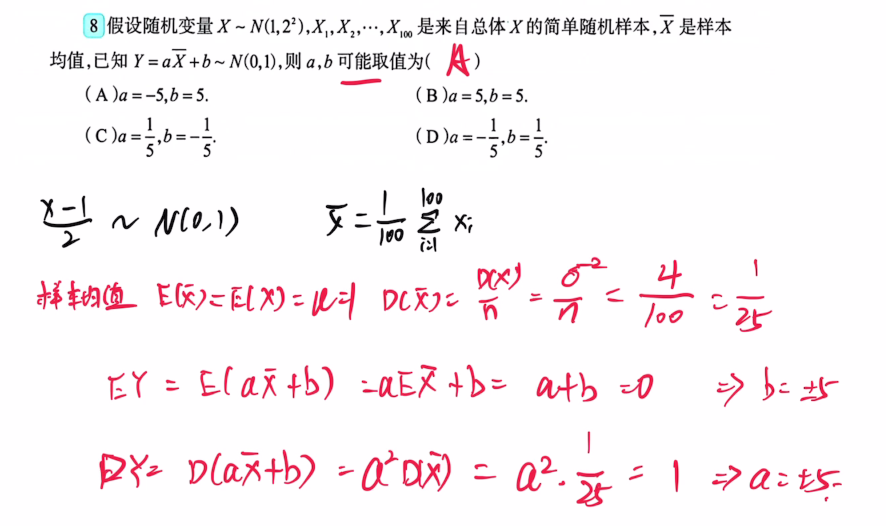 8 假设随机变量 X ~ N(1,2²),X₁,X₂,⋯,X₁₀₀ 是来自总体 X 的简单随机样本,X̄ 是样本
均值,已知 Y=aX̄+b~N(0,1),则 a,b 可能取值为( A )
(A)a=-5,b=5. (B)a=5,b=5.
(C)a=1/5,b=-1/5. (D)a=-1/5,b=1/5.
(x-1)/2 ~ N(0,1) x̄ = 1/100 ∑_{i=1}^{100} xᵢ
样本均值 E(x̄)=E(x)=μ=1 D(x̄)= D(x)/n = σ²/n = 4/100 = 1/25
EY = E(ax̄+b) =aEx̄+b= a+b =0 => b=±5
DY= D(ax̄+b) =a²D(x̄) = a²·1/25 = 1 => a=±5.